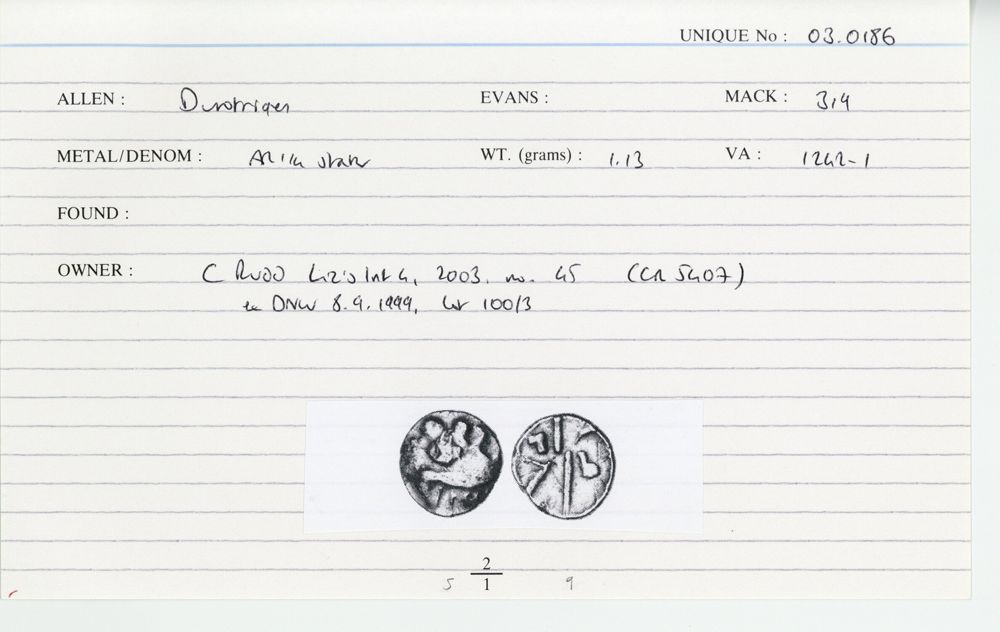 UNIQUE No : 03.0186
ALLEN : Durotriges EVANS : MACK : 319
METAL/DENOM : AR 1/4 stater WT. (grams) : 1.13 VA : 1242-1
FOUND :
OWNER : C RUDD Liz's list 4, 2003, no. 45 (CR 5407)
ex DNW 8.9.1999, lot 100/3
2
5 1 9